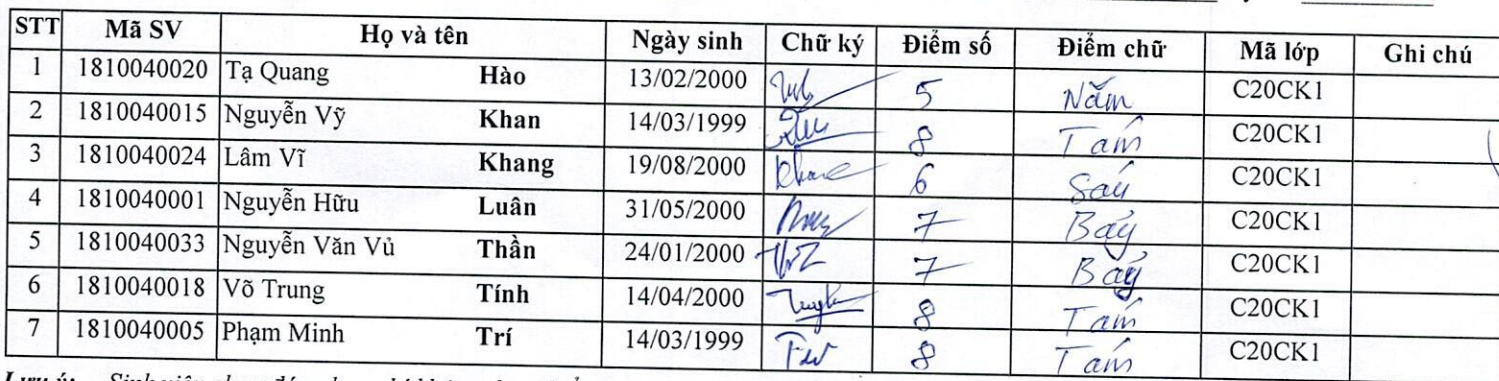 STT Mã SV Họ và tên Ngày sinh Chữ ký Điểm số Điểm chữ Mã lớp Ghi chú
1 1810040020 Tạ Quang Hào 13/02/2000 5 Năm C20CK1
2 1810040015 Nguyễn Vỹ Khan 14/03/1999 8 Tám C20CK1
3 1810040024 Lâm Vĩ Khang 19/08/2000 6 Sáu C20CK1
4 1810040001 Nguyễn Hữu Luân 31/05/2000 7 Bảy C20CK1
5 1810040033 Nguyễn Văn Vủ Thần 24/01/2000 7 Bảy C20CK1
6 1810040018 Võ Trung Tính 14/04/2000 8 Tám C20CK1
7 1810040005 Phạm Minh Trí 14/03/1999 8 Tám C20CK1
Lưu ý: Sinh viên